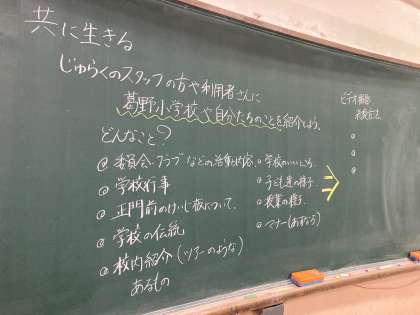 共に生きる
じゅらくのスタッフの方や利用者さんに
葛野小学校や自分たちのことを紹介しよう。
どんなこと?
@ 委員会・クラブなどの活動内容
@ 学校行事
@ 正門前のけいじ板について、
@ 学校の伝統
@ 校内紹介(ツアーのような)
あるもの
@ 学校のいいところ
@ 子ども達の様子
@ 授業の様子
@ マナー(あいさつ)
ビデオ
発表方法